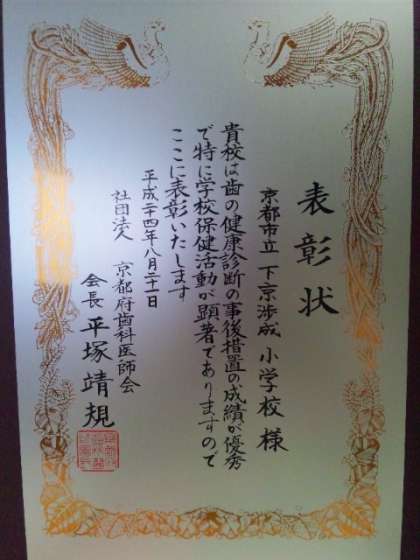 表彰状
京都市立 下京渉成 小学校 様
貴校は歯の健康診断の事後措置の成績が優秀
で特に学校保健活動が顕著でありますので
ここに表彰いたします
平成二十四年八月二十一日
社団法人 京都府歯科医師会
会長 平塚靖規